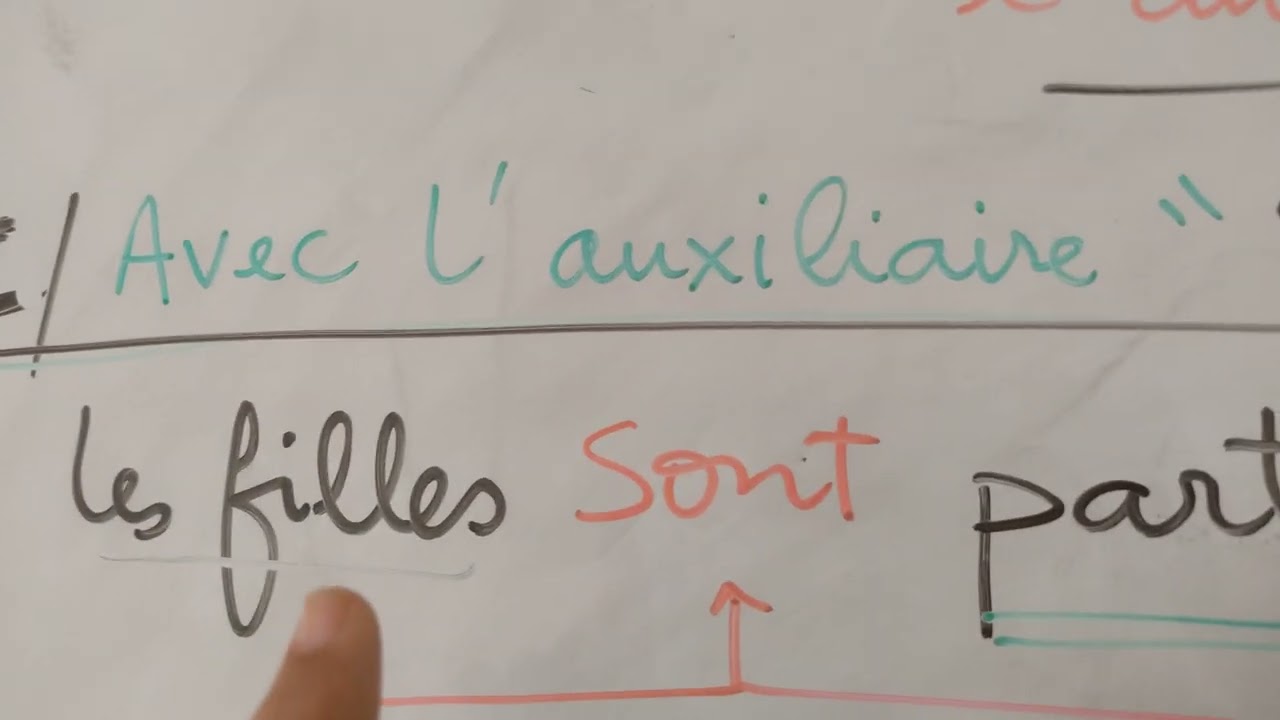 Avec l'auxiliaire "
les filles sont part